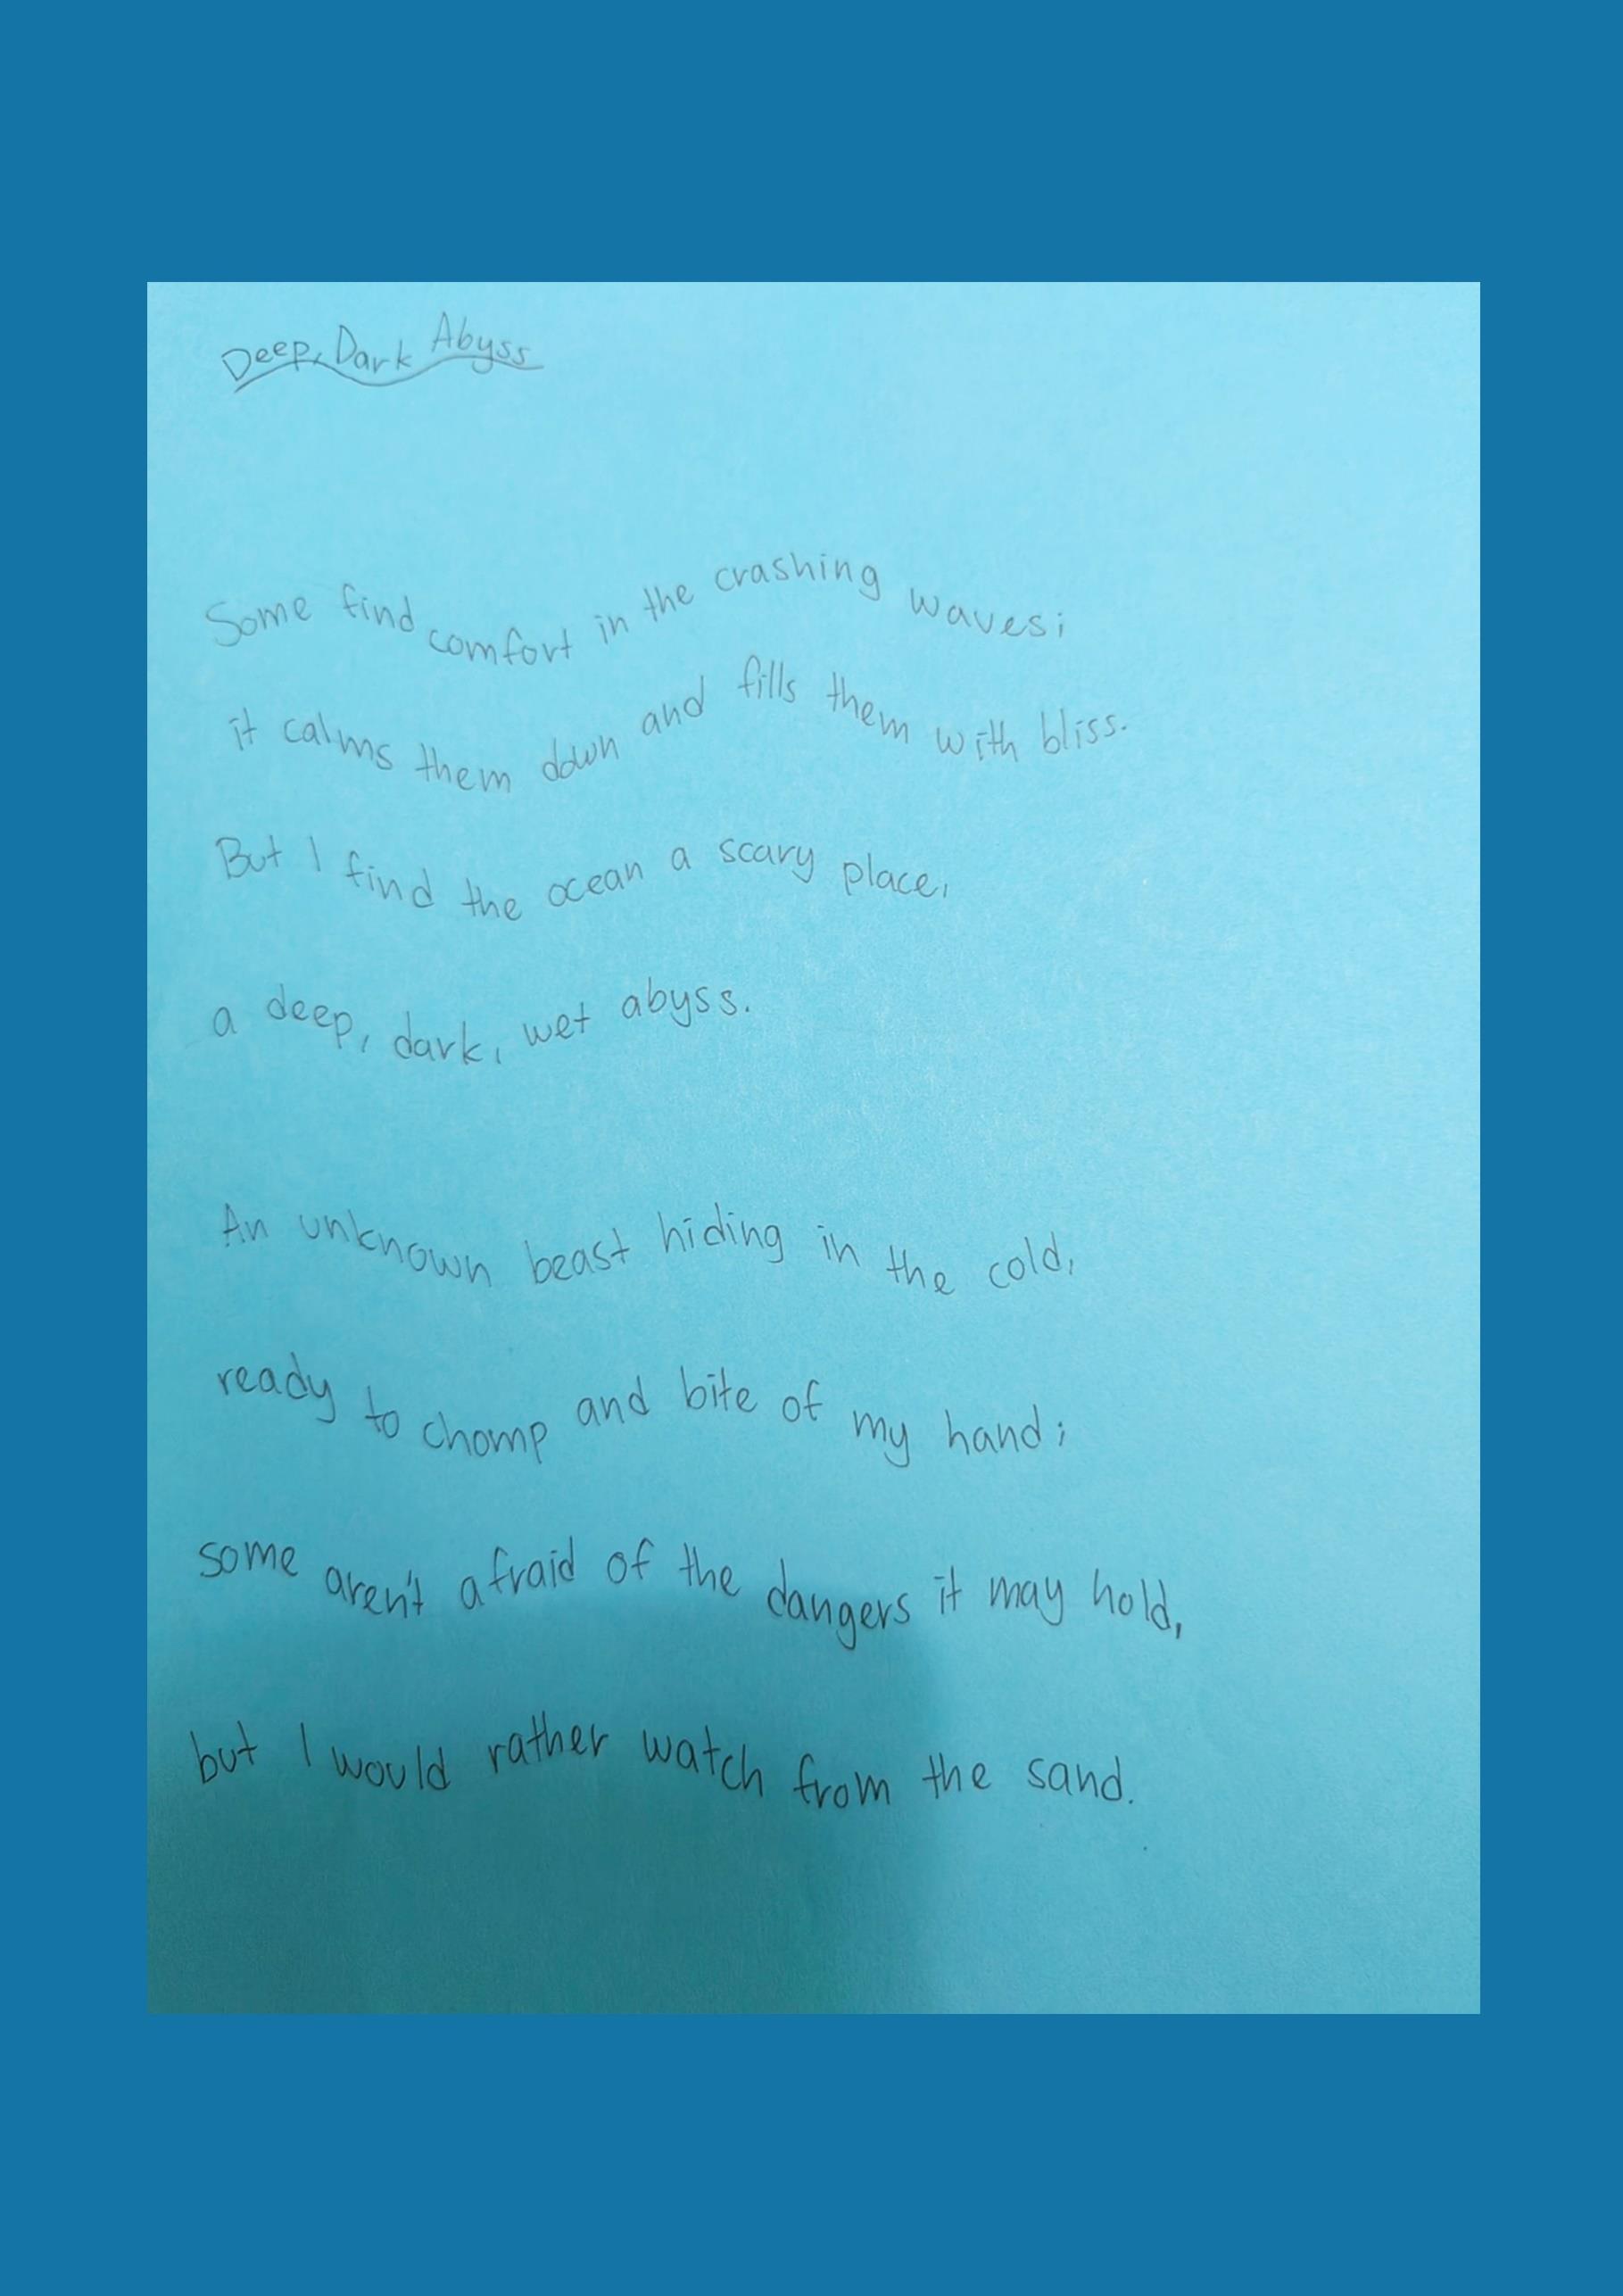 Deep, Dark Abyss
Some find comfort in the crashing waves;
it calms them down and fills them with bliss.
But I find the ocean a scary place,
a deep, dark, wet abyss.
An unknown beast hiding in the cold,
ready to chomp and bite of my hand;
some aren't afraid of the dangers it may hold,
but I would rather watch from the sand.